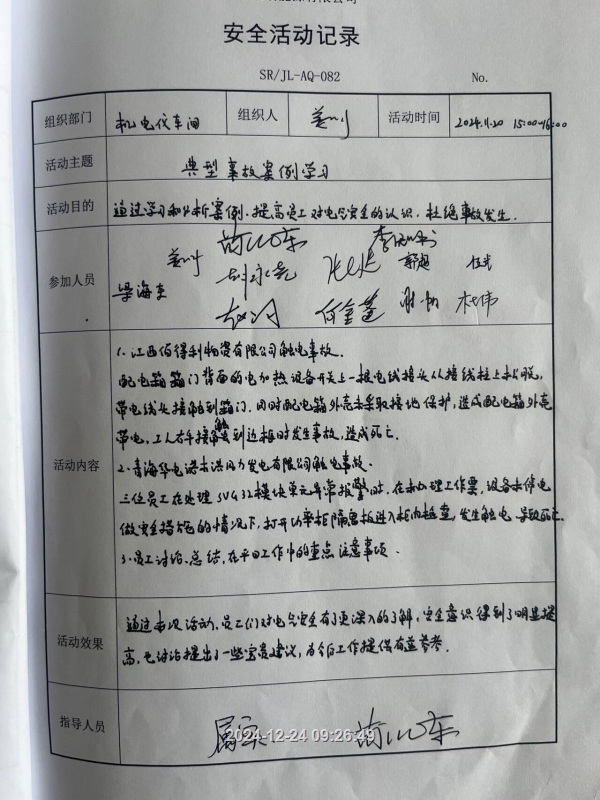 安全活动记录
SR/JL-AQ-082 No.
组织部门 机电仪车间 组织人 活动时间 2024.11.20 15:00-16:00
活动主题 典型事故案例学习
活动目的 通过学习和分析案例,提高员工对电气安全的认识,杜绝事故发生.
参加人员
梁海东
活动内容
1、江西佰得利物资有限公司触电事故.
配电箱箱门背面的电加热设备开关上一根电线接头从接线柱上松脱,
带电线头接触到箱门.同时配电箱外壳未采取接地保护,造成配电箱外壳
带电,工人右手接触到边框时发生事故,造成死亡.
2、青海华电诺木洪风力发电有限公司触电事故.
三位员工在处理SVG 32模块单元异常报警时,在未办理工作票,设备未停电
做安全措施的情况下,打开功率柜隔离板进入柜内检查,发生触电,导致死亡.
3、员工讨论、总结,在平日工作中的重点注意事项.
活动效果
通过本次活动,员工们对电气安全有了更深入的了解,安全意识得到了明显提
高,也讨论提出了一些宝贵建议,为今后工作提供有益参考.
指导人员
2024-12-24 09:26:49